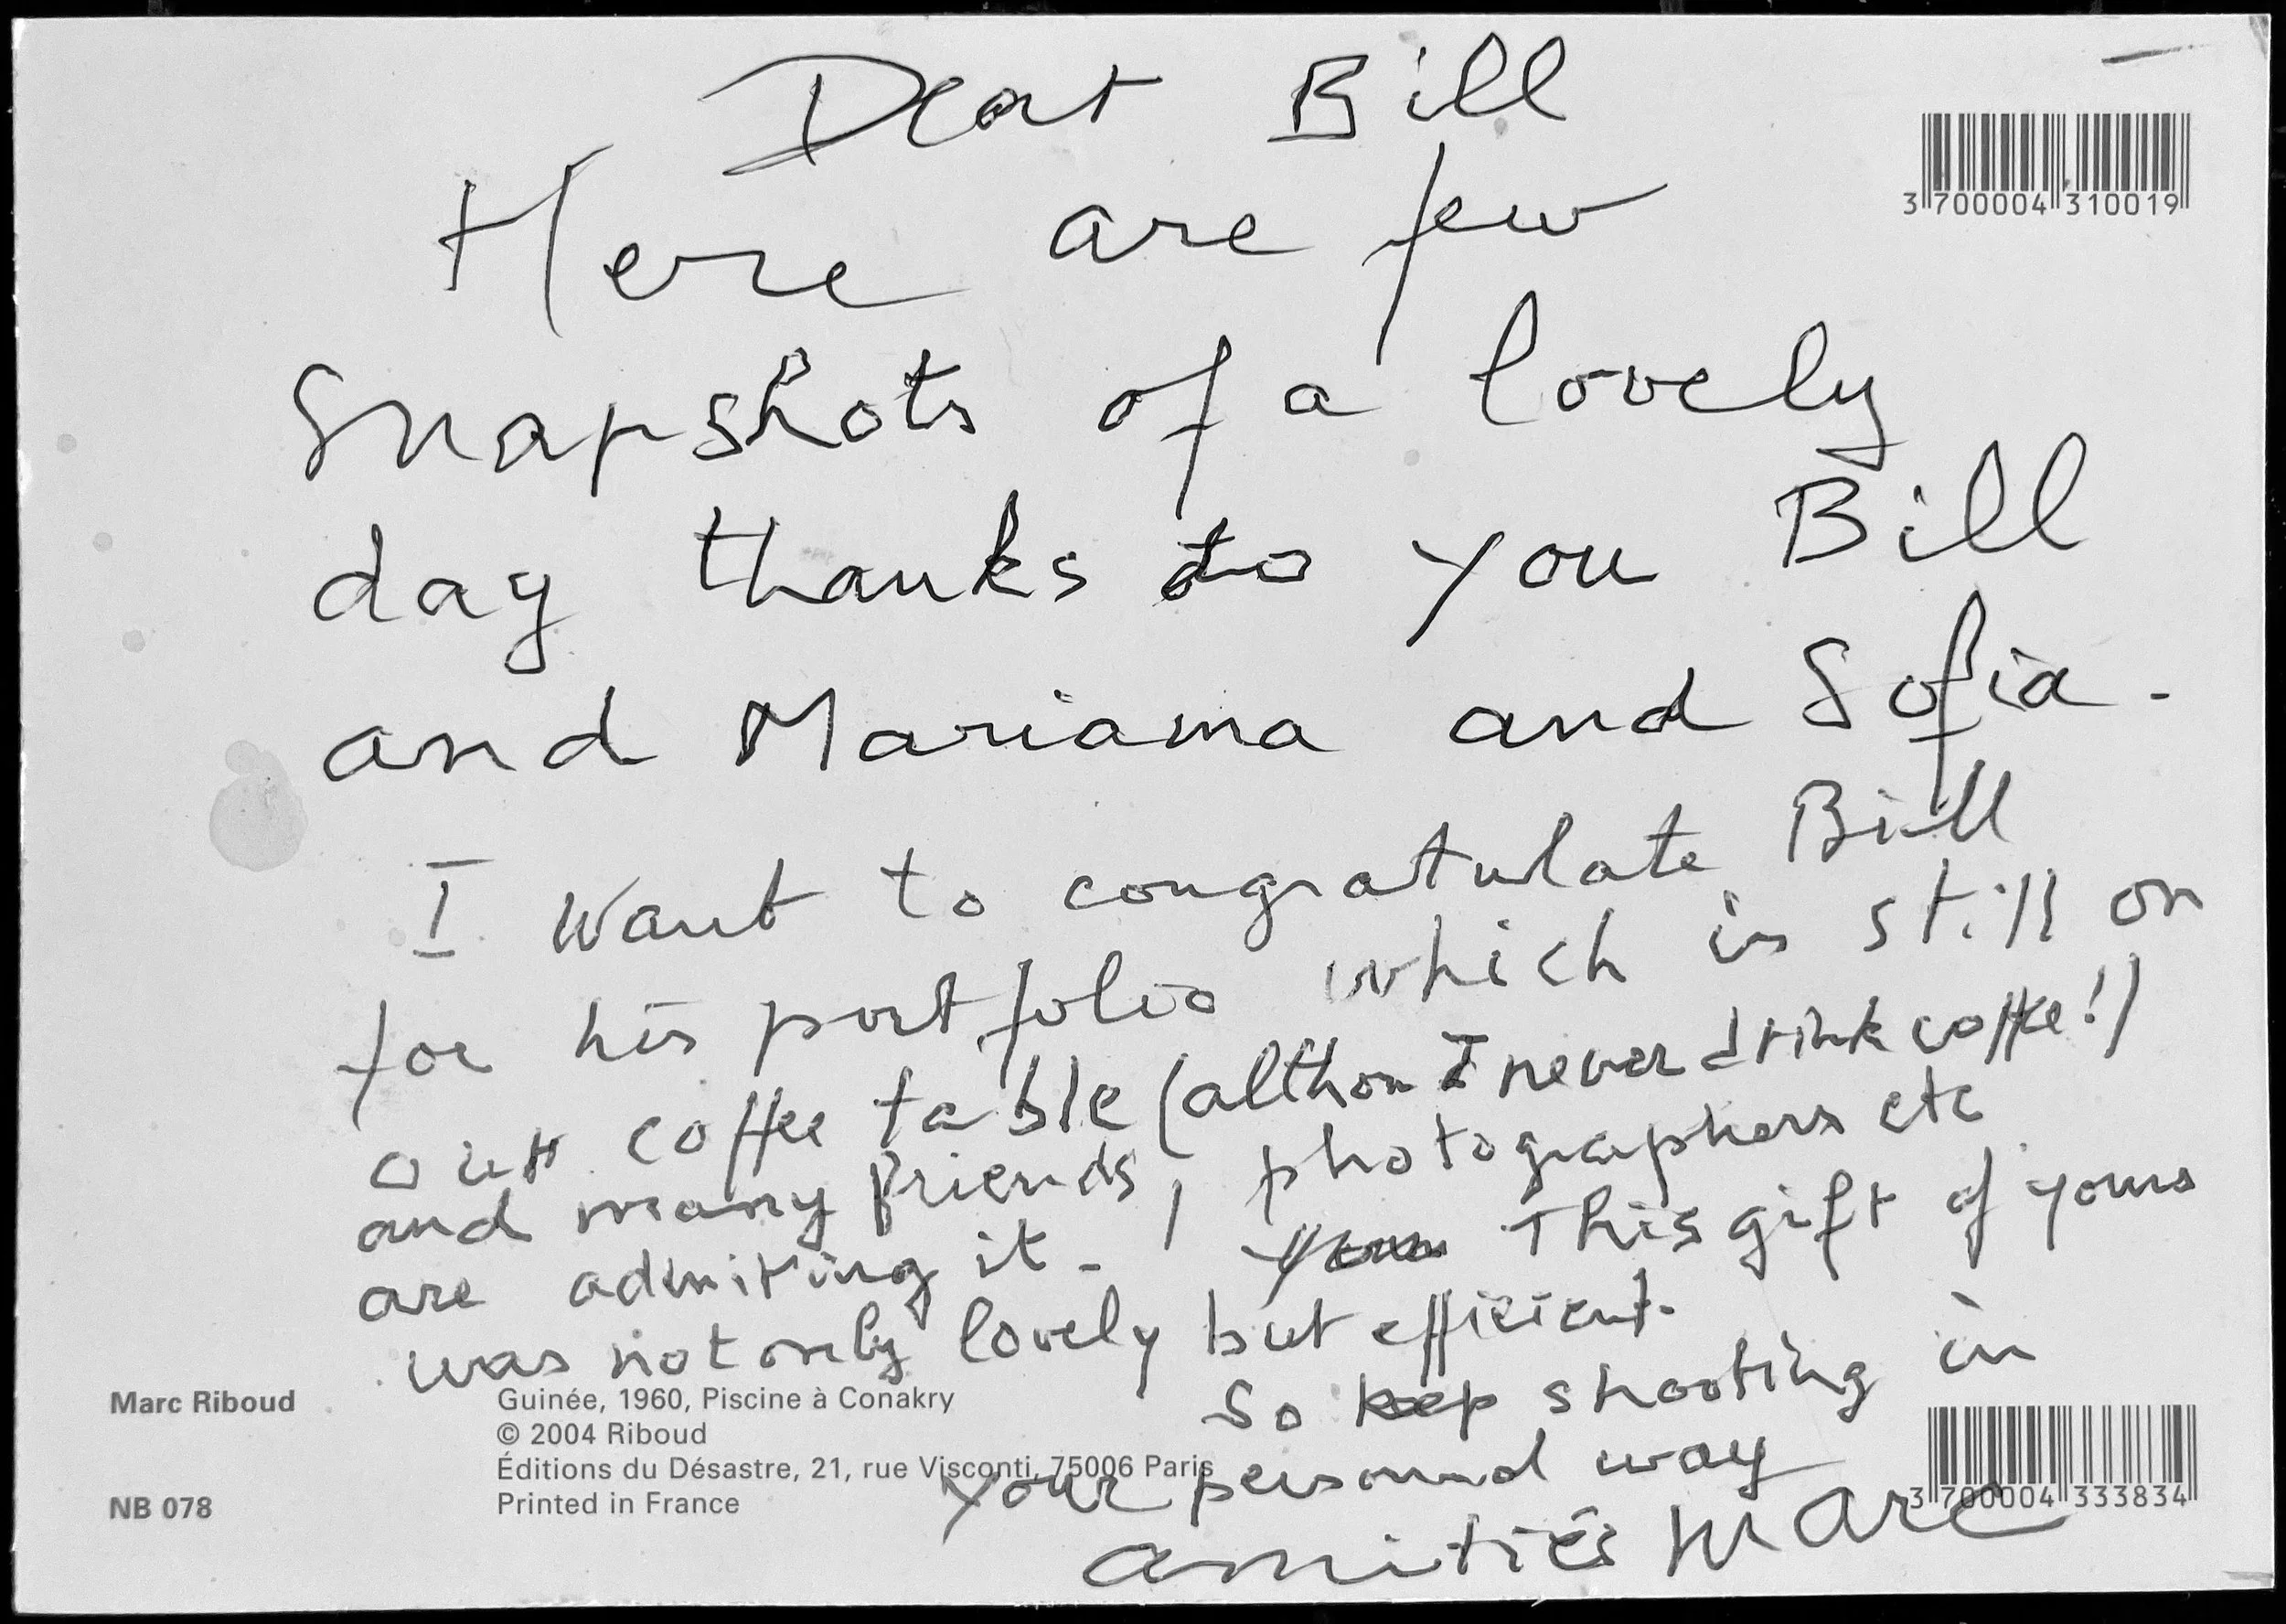 Dear Bill
Here are few
3 700004 310019
Snapshots of a lovely
day thanks to you Bill
and Mariama and Sofia -
I want to congratulate Bill
for his portfolio which is still on
our coffee table (althou I never drink coffee!)
and many friends, photographers etc
are admiring it - This gift of yours
was not only lovely but efficient.
So keep shooting in
your personal way
amitiés Marc
Marc Riboud
Guinée, 1960, Piscine à Conakry
© 2004 Riboud
Éditions du Désastre, 21, rue Visconti, 75006 Paris
NB 078
Printed in France
3 700004 333834